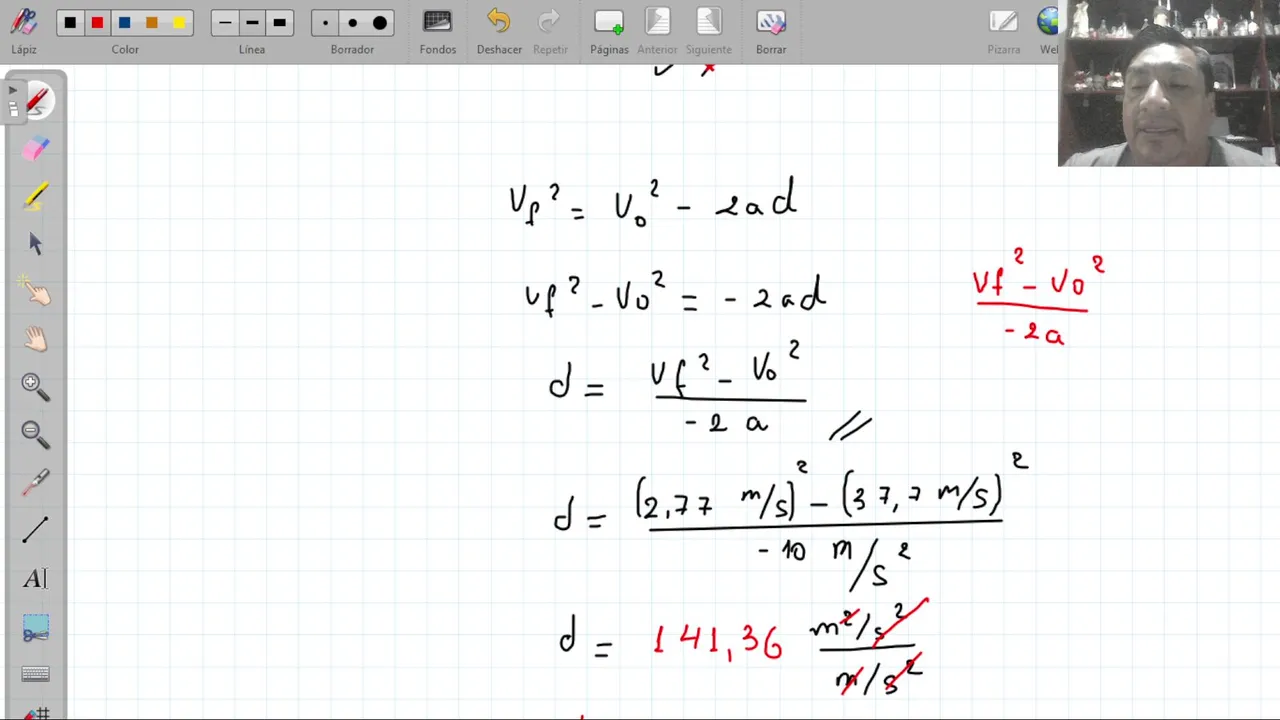 Lápiz Color Línea Borrador Fondos Deshacer Repetir Páginas Anterior Siguiente Borrar Pizarra Web
Vf² = V₀² - 2ad
Vf² - V₀² = - 2ad
Vf² - V₀²
- 2a
d = Vf² - V₀²
- 2 a //
d = (2,77 m/s)² - (37,7 m/s)²
- 10 m/s²
d = 141,36 m²/s²
m/s²